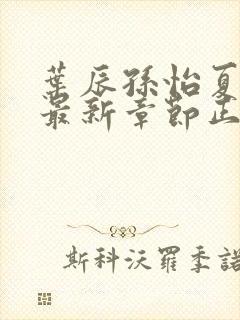 葉辰孫怡夏
最新章節正
斯科沃羅季諾